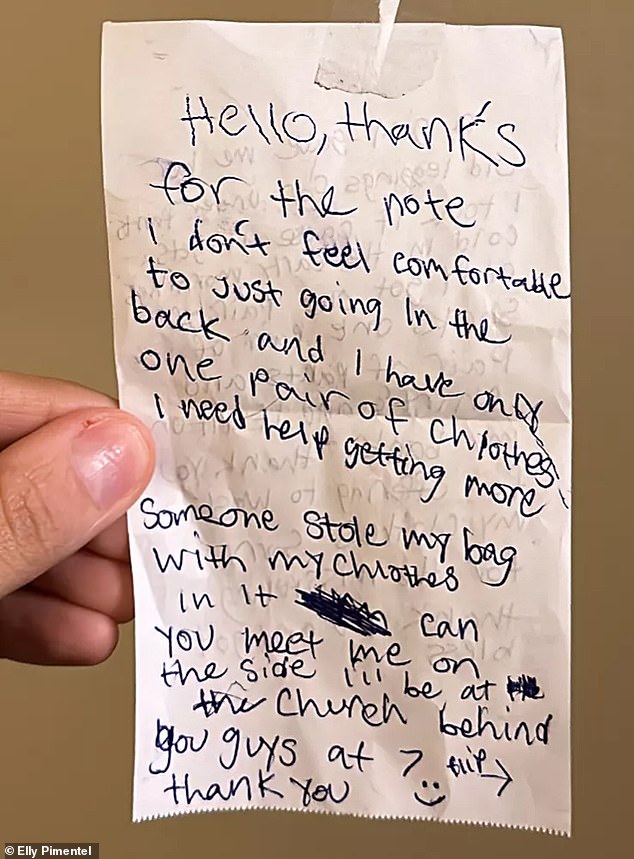 Hello, thank's
for the note
I don't feel comfortable
to just going In the
back and I have only
one pair of chlothes
I need help getting more
Someone stole my bag
with my chlothes
in it can
you meet me on
the side I'll be at
the Church behind
you guys at 7 flip →
thank you
© Elly Pimentel